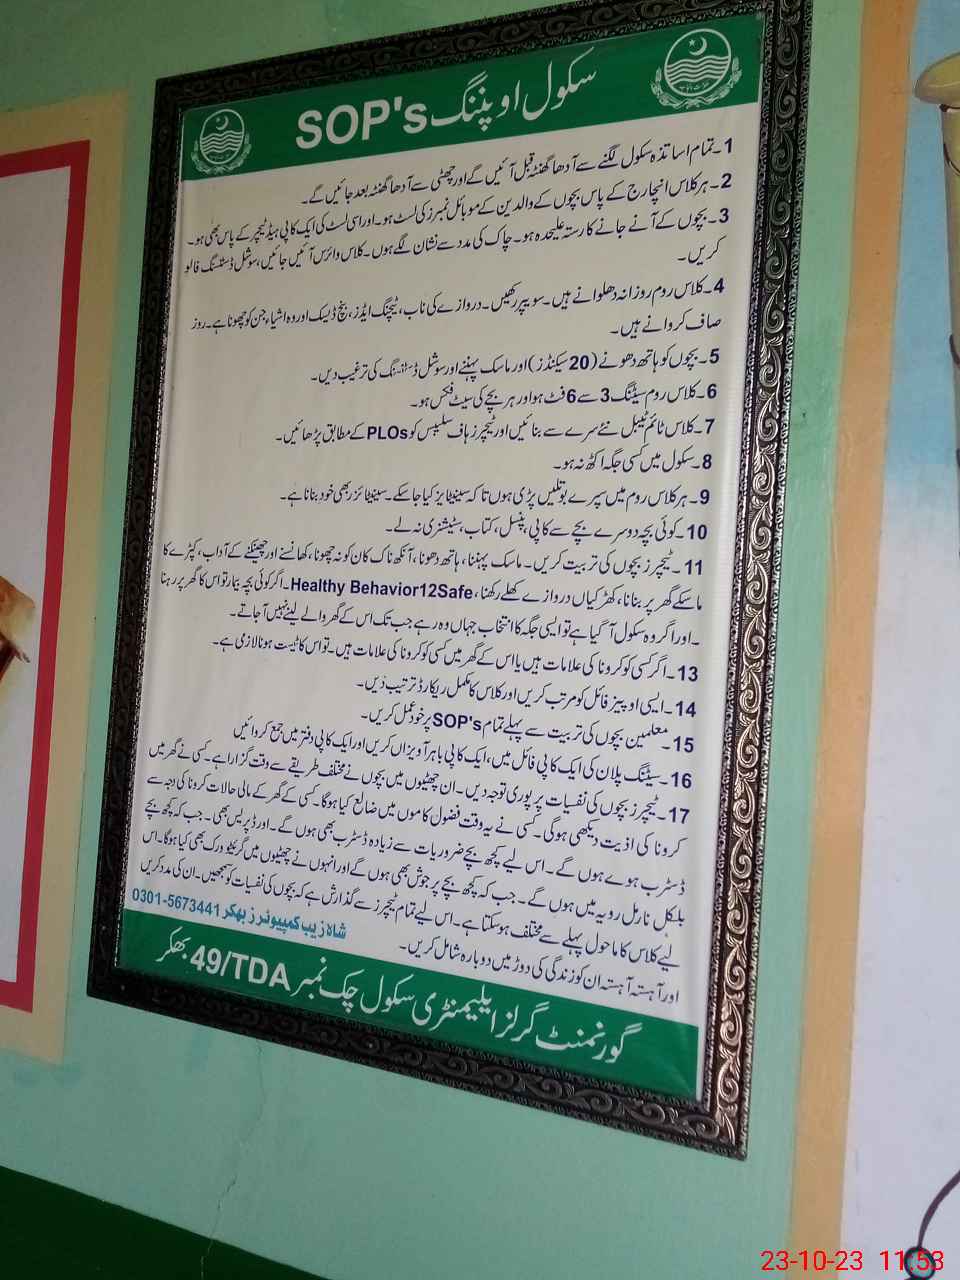 سکول اوپننگ SOP's
1۔ تمام اساتذہ سکول لگنے سے آدھا گھنٹہ قبل آئیں گے اور چھٹی سے آدھا گھنٹہ بعد جائیں گے۔
2۔ ہر کلاس انچارج کے پاس بچوں کے والدین کے موبائل نمبرز کی لسٹ ہو۔ اور اسی لسٹ کی ایک کاپی ہیڈ ٹیچر کے پاس بھی ہو۔
3۔ بچوں کے آنے جانے کا رستہ علیحدہ ہو۔ چاک کی مدد سے نشان لگے ہوں۔ کلاس وائرس آئیں جائیں، سوشل ڈسٹنسنگ فالو
کریں۔
4۔ کلاس روم روزانہ دھلوانے ہیں۔ سویپر رکھیں۔ دروازے کی ناب، ٹیچنگ ایڈز، بنچ ڈیسک اور وہ اشیاء جن کو چھونا ہے۔ روز
صاف کروانے ہیں۔
5۔ بچوں کو ہاتھ دھونے (20 سیکنڈز) اور ماسک پہننے اور سوشل ڈسٹنسنگ کی ترغیب دیں۔
6۔ کلاس روم سیٹنگ 3 سے 6 فٹ ہو اور ہر بچے کی سیٹ فکس ہو۔
7۔ کلاس ٹائم ٹیبل نئے سرے سے بنائیں اور ٹیچرز ہاف سلیبس کو PLOs کے مطابق پڑھائیں۔
8۔ سکول میں کسی جگہ اکٹھ نہ ہو۔
9۔ ہر کلاس روم میں سپرے بوتلیں پڑی ہوں تاکہ سینیٹایز کیا جا سکے۔ سینیٹائزر بھی خود بنانا ہے۔
10۔ کوئی بچہ دوسرے بچے سے کاپی، پنسل، کتاب، سٹیشنری نہ لے۔
11۔ ٹیچرز بچوں کی تربیت کریں۔ ماسک پہننا، ہاتھ دھونا، آنکھ ناک کان کو نہ چھونا، کھانسنے اور چھینکنے کے آداب، کپڑے کا
ماسکے گھر پر بنانا، کھڑکیاں دروازے کھلے رکھنا، Healthy Behavior12Safe۔ اگر کوئی بچہ بیمار تو اس کا گھر پر رہنا
۔ اور اگر وہ سکول آ گیا ہے تو ایسی جگہ کا انتخاب جہاں وہ رہے جب تک اس کے گھر والے لینے نہیں آ جاتے۔
13۔ اگر کسی کو کرونا کی علامات ہیں یا اس کے گھر میں کسی کو کرونا کی علامات ہیں۔ تو اس کا ٹیسٹ ہونا لازمی ہے۔
14۔ ایسی او پیز فائل کو مرتب کریں اور کلاس کا مکمل ریکارڈ ترتیب دیں۔
15۔ معلمین بچوں کی تربیت سے پہلے تمام SOP's پر خود عمل کریں۔
16۔ سیٹنگ پلان کی ایک کاپی فائل میں، ایک کاپی باہر آویزاں کریں اور ایک کاپی دفتر میں جمع کروائیں
17۔ ٹیچرز بچوں کی نفسیات پر پوری توجہ دیں۔ ان چھٹیوں میں بچوں نے مختلف طریقے سے وقت گزارا ہے۔ کسی نے گھر میں
کرونا کی اذیت دیکھی ہوگی۔ کسی نے یہ وقت فضول کاموں میں ضائع کیا ہوگا۔ کسی کے گھر کے مالی حالات کرونا کی وجہ سے
ڈسٹرب ہوے ہوں گے۔ اس لیے کچھ بچے ضروریات سے زیادہ ڈسٹرب بھی ہوں گے۔ اور ڈپریس بھی۔ جب کہ کچھ بچے
بلکل نارمل رویہ میں ہوں گے۔ جب کہ کچھ بچے پر جوش بھی ہوں گے اور انہوں نے چھٹیوں میں کریٹو ورک بھی کیا ہوگا۔ اس
لیے کلاس کا ماحول پہلے سے مختلف ہو سکتا ہے۔ اس لیے تمام ٹیچرز سے گذارش ہے کہ بچوں کی نفسیات کو سمجھیں۔ ان کی مدد کریں
اور آہستہ آہستہ ان کو زندگی کی دوڑ میں دوبارہ شامل کریں۔
شاہ زیب کمپیوٹرز بھکر 0301-5673441
گورنمنٹ گرلز ایلیمنٹری سکول چک نمبر 49/TDA بھکر
23-10-23 11:53